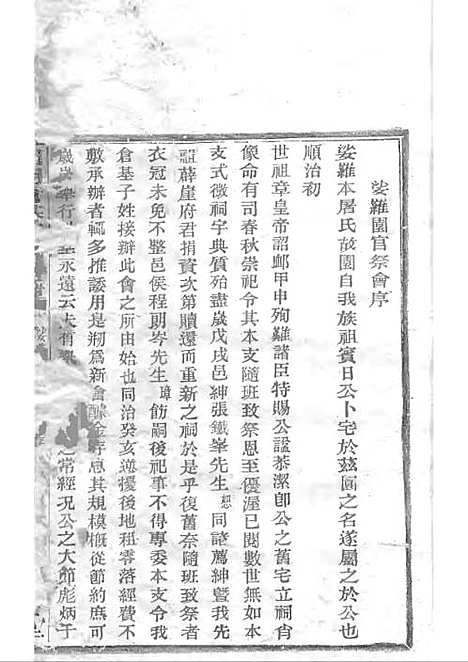 娑羅園官祭會序
娑羅本屠氏故園自我族祖賓日公卜宅於茲園之名遂屬之於公也
順治初
世祖章皇帝詔䘏甲申殉難諸臣特賜公諡恭潔卽公之舊宅立祠肖
像命有司春秋崇祀令其本支隨班致祭恩至優渥已閱數世無如
支式微祠字典質殆盡歲戊戌邑紳張鐵峯先生恕同諸薦紳暨我先
祖薛崖府君捐資次第贖還而重新之祠於是乎復舊奈隨班致祭者
衣冠未免不整邑侯程朗岑先生璋飭嗣後祀事不得專委本支令我
倉基子姓接辦此會之所由始也同治癸亥逆擾後地租零落經費不
敷承辦者輒多推諉用是剏爲新會醵金存息其規模槪從節約庶可
歲歲奉行 永遠云夫有 之常經况公之大節彪炳于